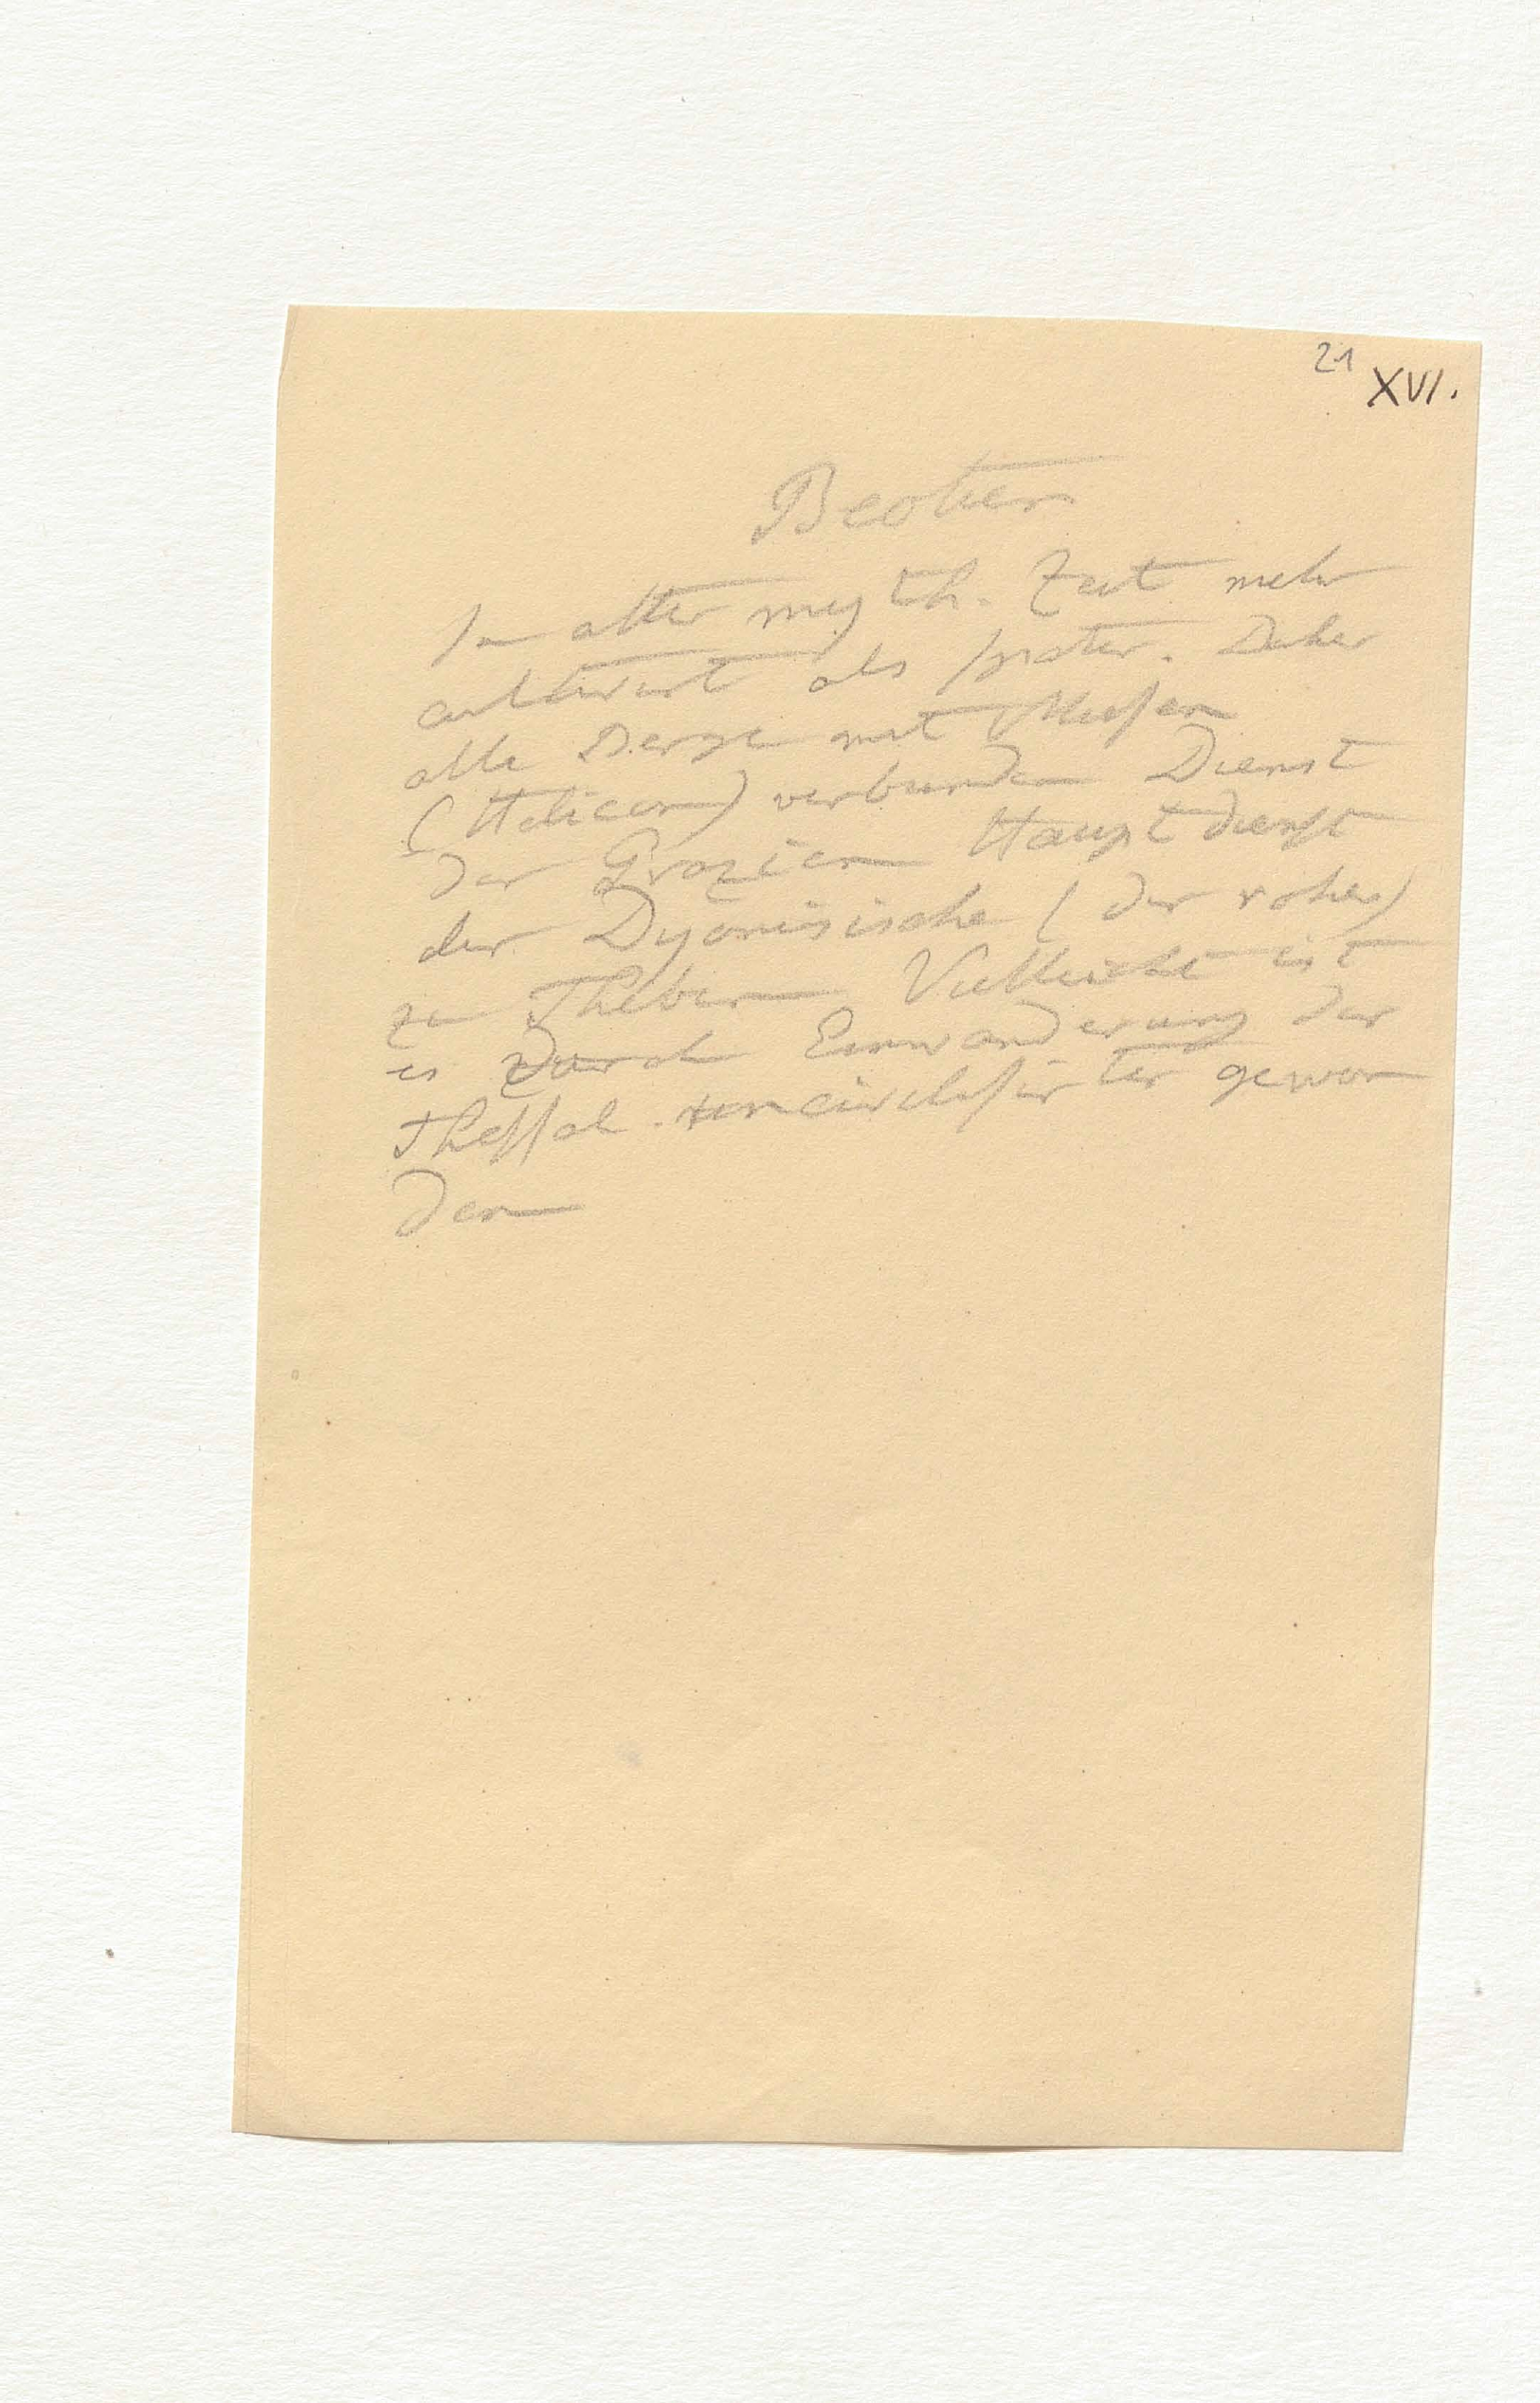 21
XVI.
Beotien
In alter myth. Zeit mehr
cultivirt als später. Daher
alle Berge mit Musen
(Helicon) verbunden Dienst
der Grazien Hauptdienst
der Dyonisische (der rohe)
zu Theben Vielleicht ist
es durch Einwanderung der
Thessal. uncivilisirter gewor
den